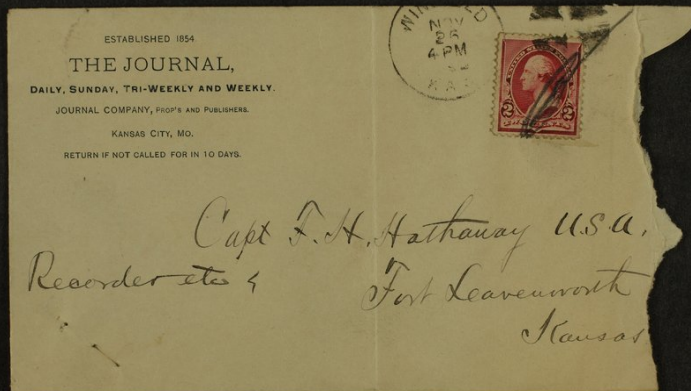 ESTABLISHED 1854
THE JOURNAL,
DAILY, SUNDAY, TRI-WEEKLY AND WEEKLY.
JOURNAL COMPANY, PROP'S AND PUBLISHERS.
KANSAS CITY, MO.
RETURN IF NOT CALLED FOR IN 10 DAYS.
NOV
26
4 PM
2 2
Capt F. H. Hathaway U.S.A.
Recorder etc
Fort Leavenworth
Kansas